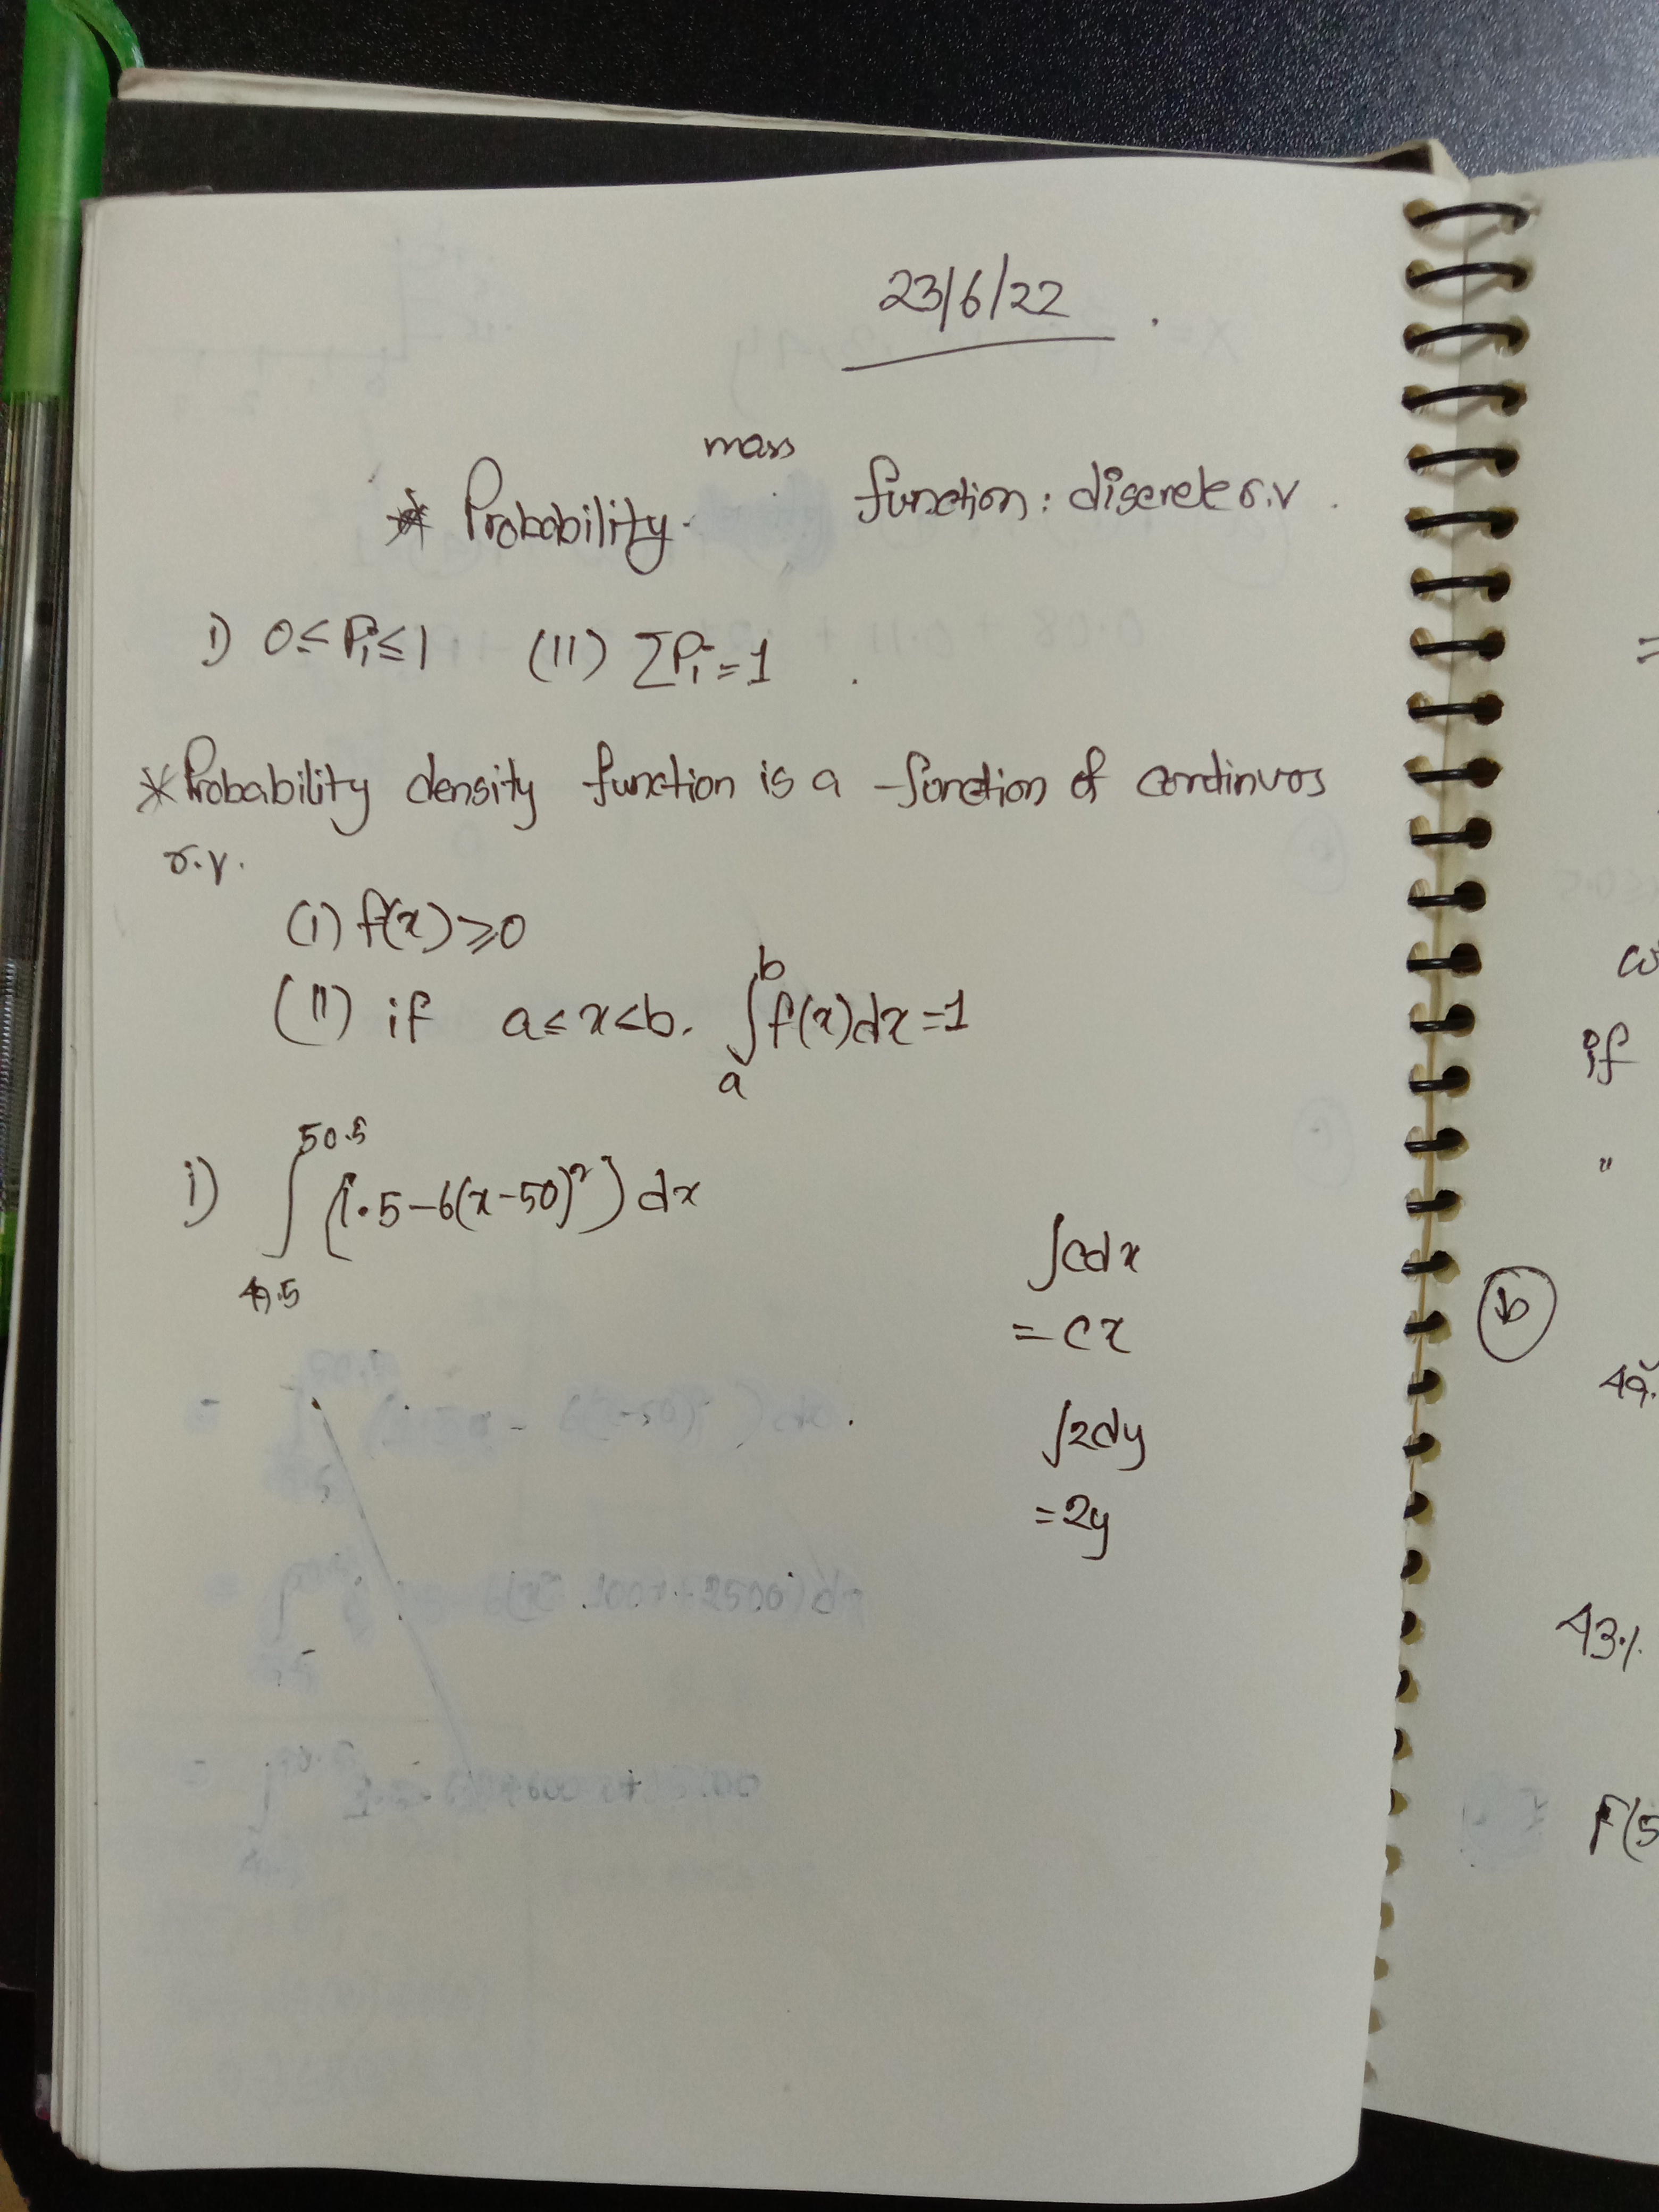 23/6/22
mass
* Probability function: discrete r.v.
1) 0≤Pi≤1 (II) ΣPi=1
*Probability density function is a function of continuos
r.v.
(I) f(x)≥0
(II) if a≤x≤b. ∫_a^b f(x)dx=1
i) ∫_{49.5}^{50.5} (1.5-6(x-50)²) dx
∫cdx
= cx
∫2dy
=2y
=
if
"
b
49.
43%
F(5